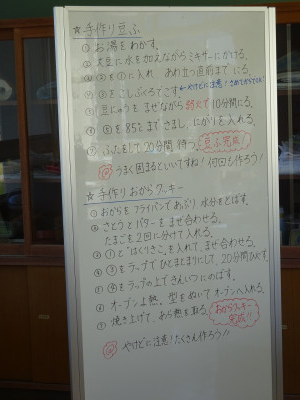 ☆手作り豆ふ
① お湯をわかす。
② 大豆に水を加えながらミキサーにかける。
③ ②を①に入れ あわ立つ直前までにる。
④ ③をこしぶくろでこす。←やけどに注意!
⑤ 豆にゅうを まぜながら弱火で10分間にる。
⑥ ⑤を85℃まで さまし、にがりを入れる。
⑦ ふたをして、20分間 待つ。豆ふ完成!
うまく固まるといいですね! 何回も作ろう!
☆手作りおからクッキー
① おからを フライパンであぶり 水分をとばす。
② さとうとバターを まぜ合わせる。
たまごを 2回に分けて入れる。
③ ①と②はくりきこを入れて、まぜ合わせる。
④ ③をラップでひとまとまりにして、20分間ひやす。
⑤ ④をラップの上で きんいつにのばす。
⑥ オーブン予熱。型をぬいてオーブンへ入れる。
⑦ 焼き上げて、あら熱を取る。おからクッキー
完成!!
やけどに注意!たくさん作ろう!!